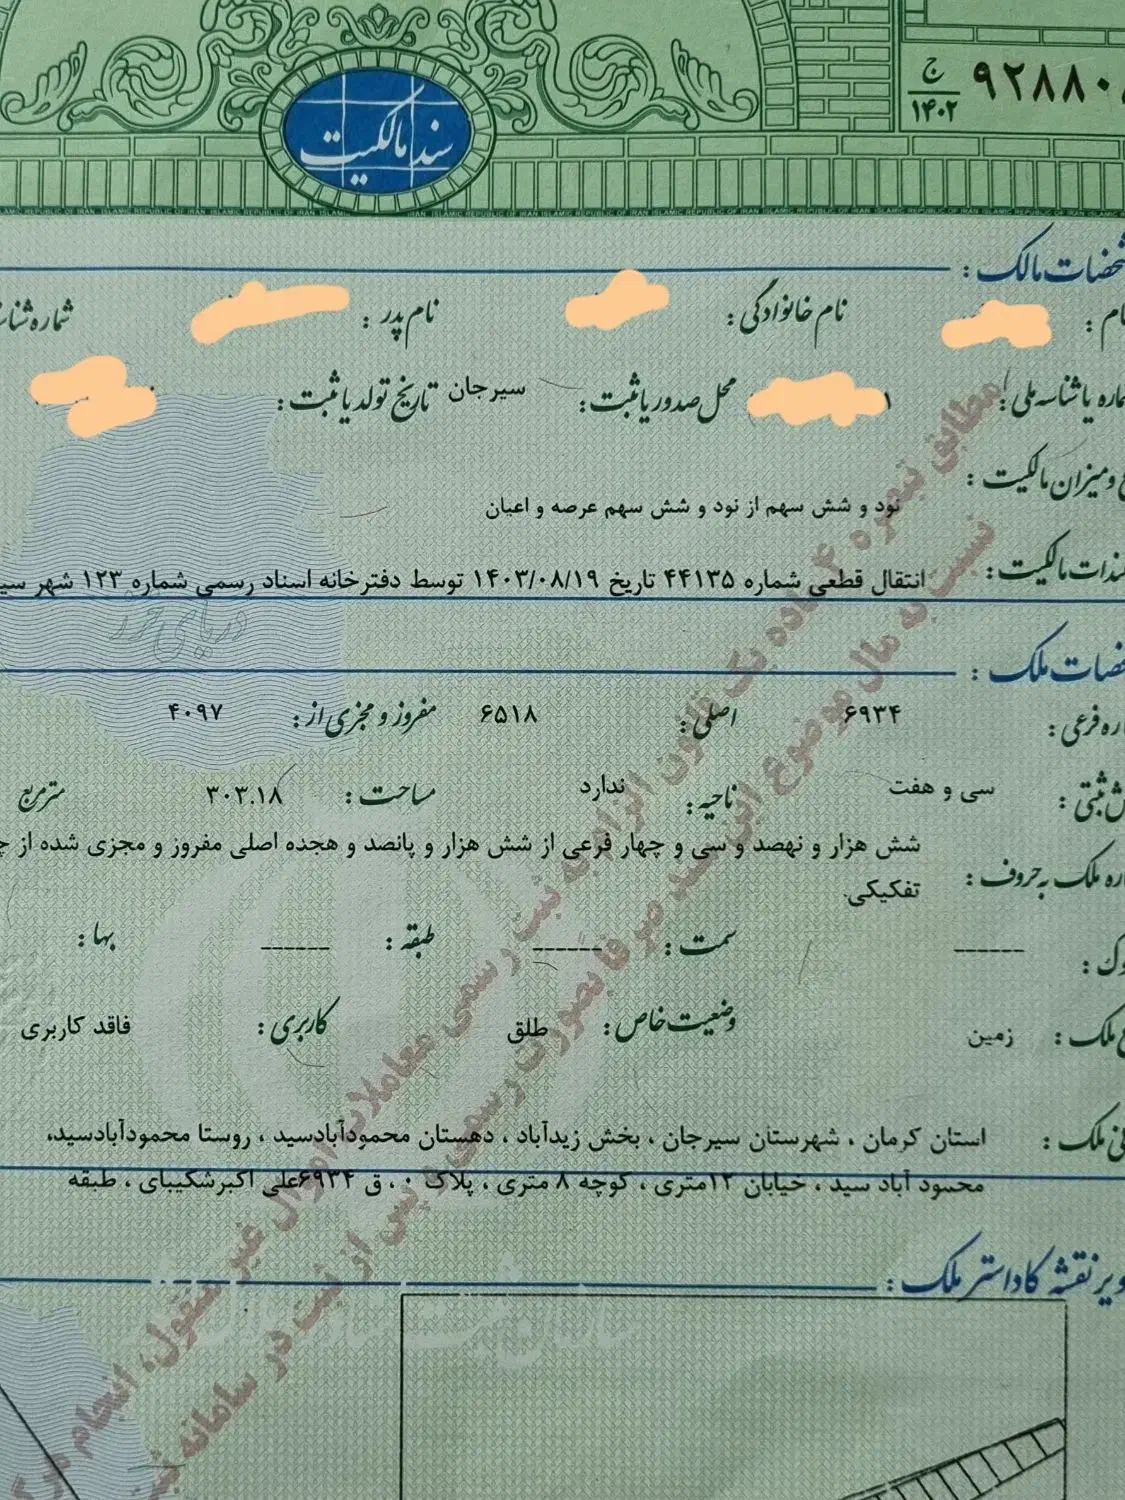 ج
۱۴۰۲
۹۲۸۸۰
سند مالکیت
ISLAMIC REPUBLIC OF IRAN ISLAMIC REPUBLIC OF IRAN ISLAMIC REPUBLIC OF IRAN
مالک :
نام خانوادگی :
نام پدر :
یا شناسه ملی :
۱
محل صدور یا ثبت :
سیرجان
تاریخ تولد یا ثبت :
و میزان مالکیت :
نود و شش سهم از نود و شش سهم عرصه و اعیان
مالکیت :
انتقال قطعی شماره ۴۴۱۳۵ تاریخ ۱۴۰۳/۰۸/۱۹ توسط دفترخانه اسناد رسمی شماره ۱۲۳ شهر
ملک :
فرعی :
۶۹۳۴
اصلی :
۶۵۱۸
مفروز و مجزی از :
۴۰۹۷
ثبتی :
سی و هفت
ناحیه :
ندارد
مساحت :
۳۰۳.۱۸
مترمربع
ملک به حروف :
شش هزار و نهصد و سی و چهار فرعی از شش هزار و پانصد و هجده اصلی مفروز و مجزی شده از
تفکیکی.
------
سمت :
------
طبقه :
------
بها :
ملک :
زمین
وضعیت خاص :
طلق
کاربری :
فاقد کاربری
ملک :
استان کرمان ، شهرستان سیرجان ، بخش زیدآباد ، دهستان محمودآبادسید ، روستا محمودآبادسید،
محمود آباد سید ، خیابان ۱۲متری ، کوچه ۸ متری ، پلاک ۰ ، ق ۶۹۳۴علی اکبرشکیبای ، طبقه
نقشه کاداستر ملک :
دریای خزر
مطابق تبصره ۴ ماده یک قانون الزام به ثبت رسمی معاملات اموال غیر منقول، انجام
نسبت به مال موضوع این سند صرفا بصورت رسمی و پس از ثبت در سامانه